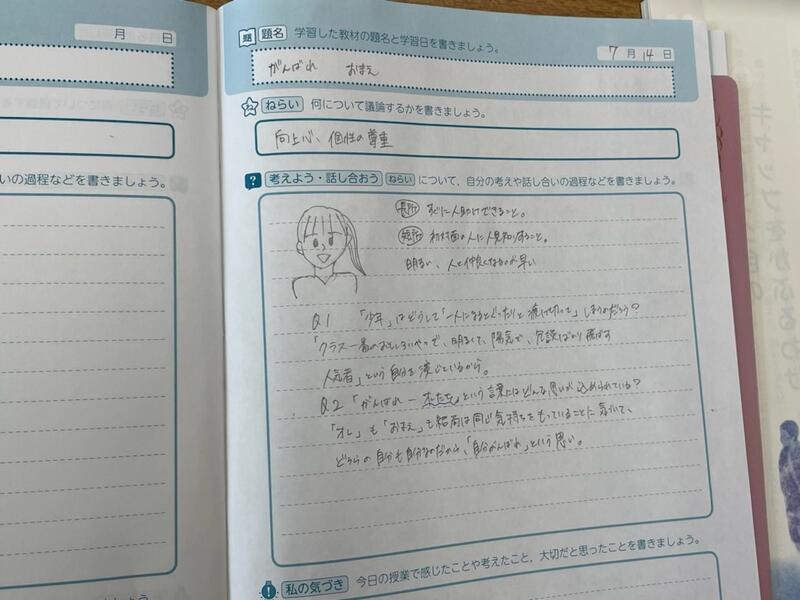 月 日
いの過程などを書きましょう。
題名 学習した教材の題名と学習日を書きましょう。
7月14日
がんばれ おまえ
ねらい 何について議論するかを書きましょう。
向上心、個性の尊重
? 考えよう・話し合おう ねらい について、自分の考えや話し合いの過程などを書きましょう。
長所 すぐに人助けできること。
短所 初対面の人に人見知りすること。
明るい、人と仲良くなるのが早い
Q1 「少年」はどうして「一人になるとぐったりと疲れ切って」しまうのだろう?
「クラス一番のおもしろいやつで、明るくて、陽気で、冗談ばかり飛ばす
人気者」という自分を演じているから。
Q2 「がんばれ ー という言葉にはどんな思いが込められている?
「オレ」も「おまえ」も結局は同じ気持ちをもっていることに気づいて、
どちらの自分も自分なのだから、「自分がんばれ」という思い。
! 私の気づき 今日の授業で感じたことや考えたこと、大切だと思ったことを書きましょう。